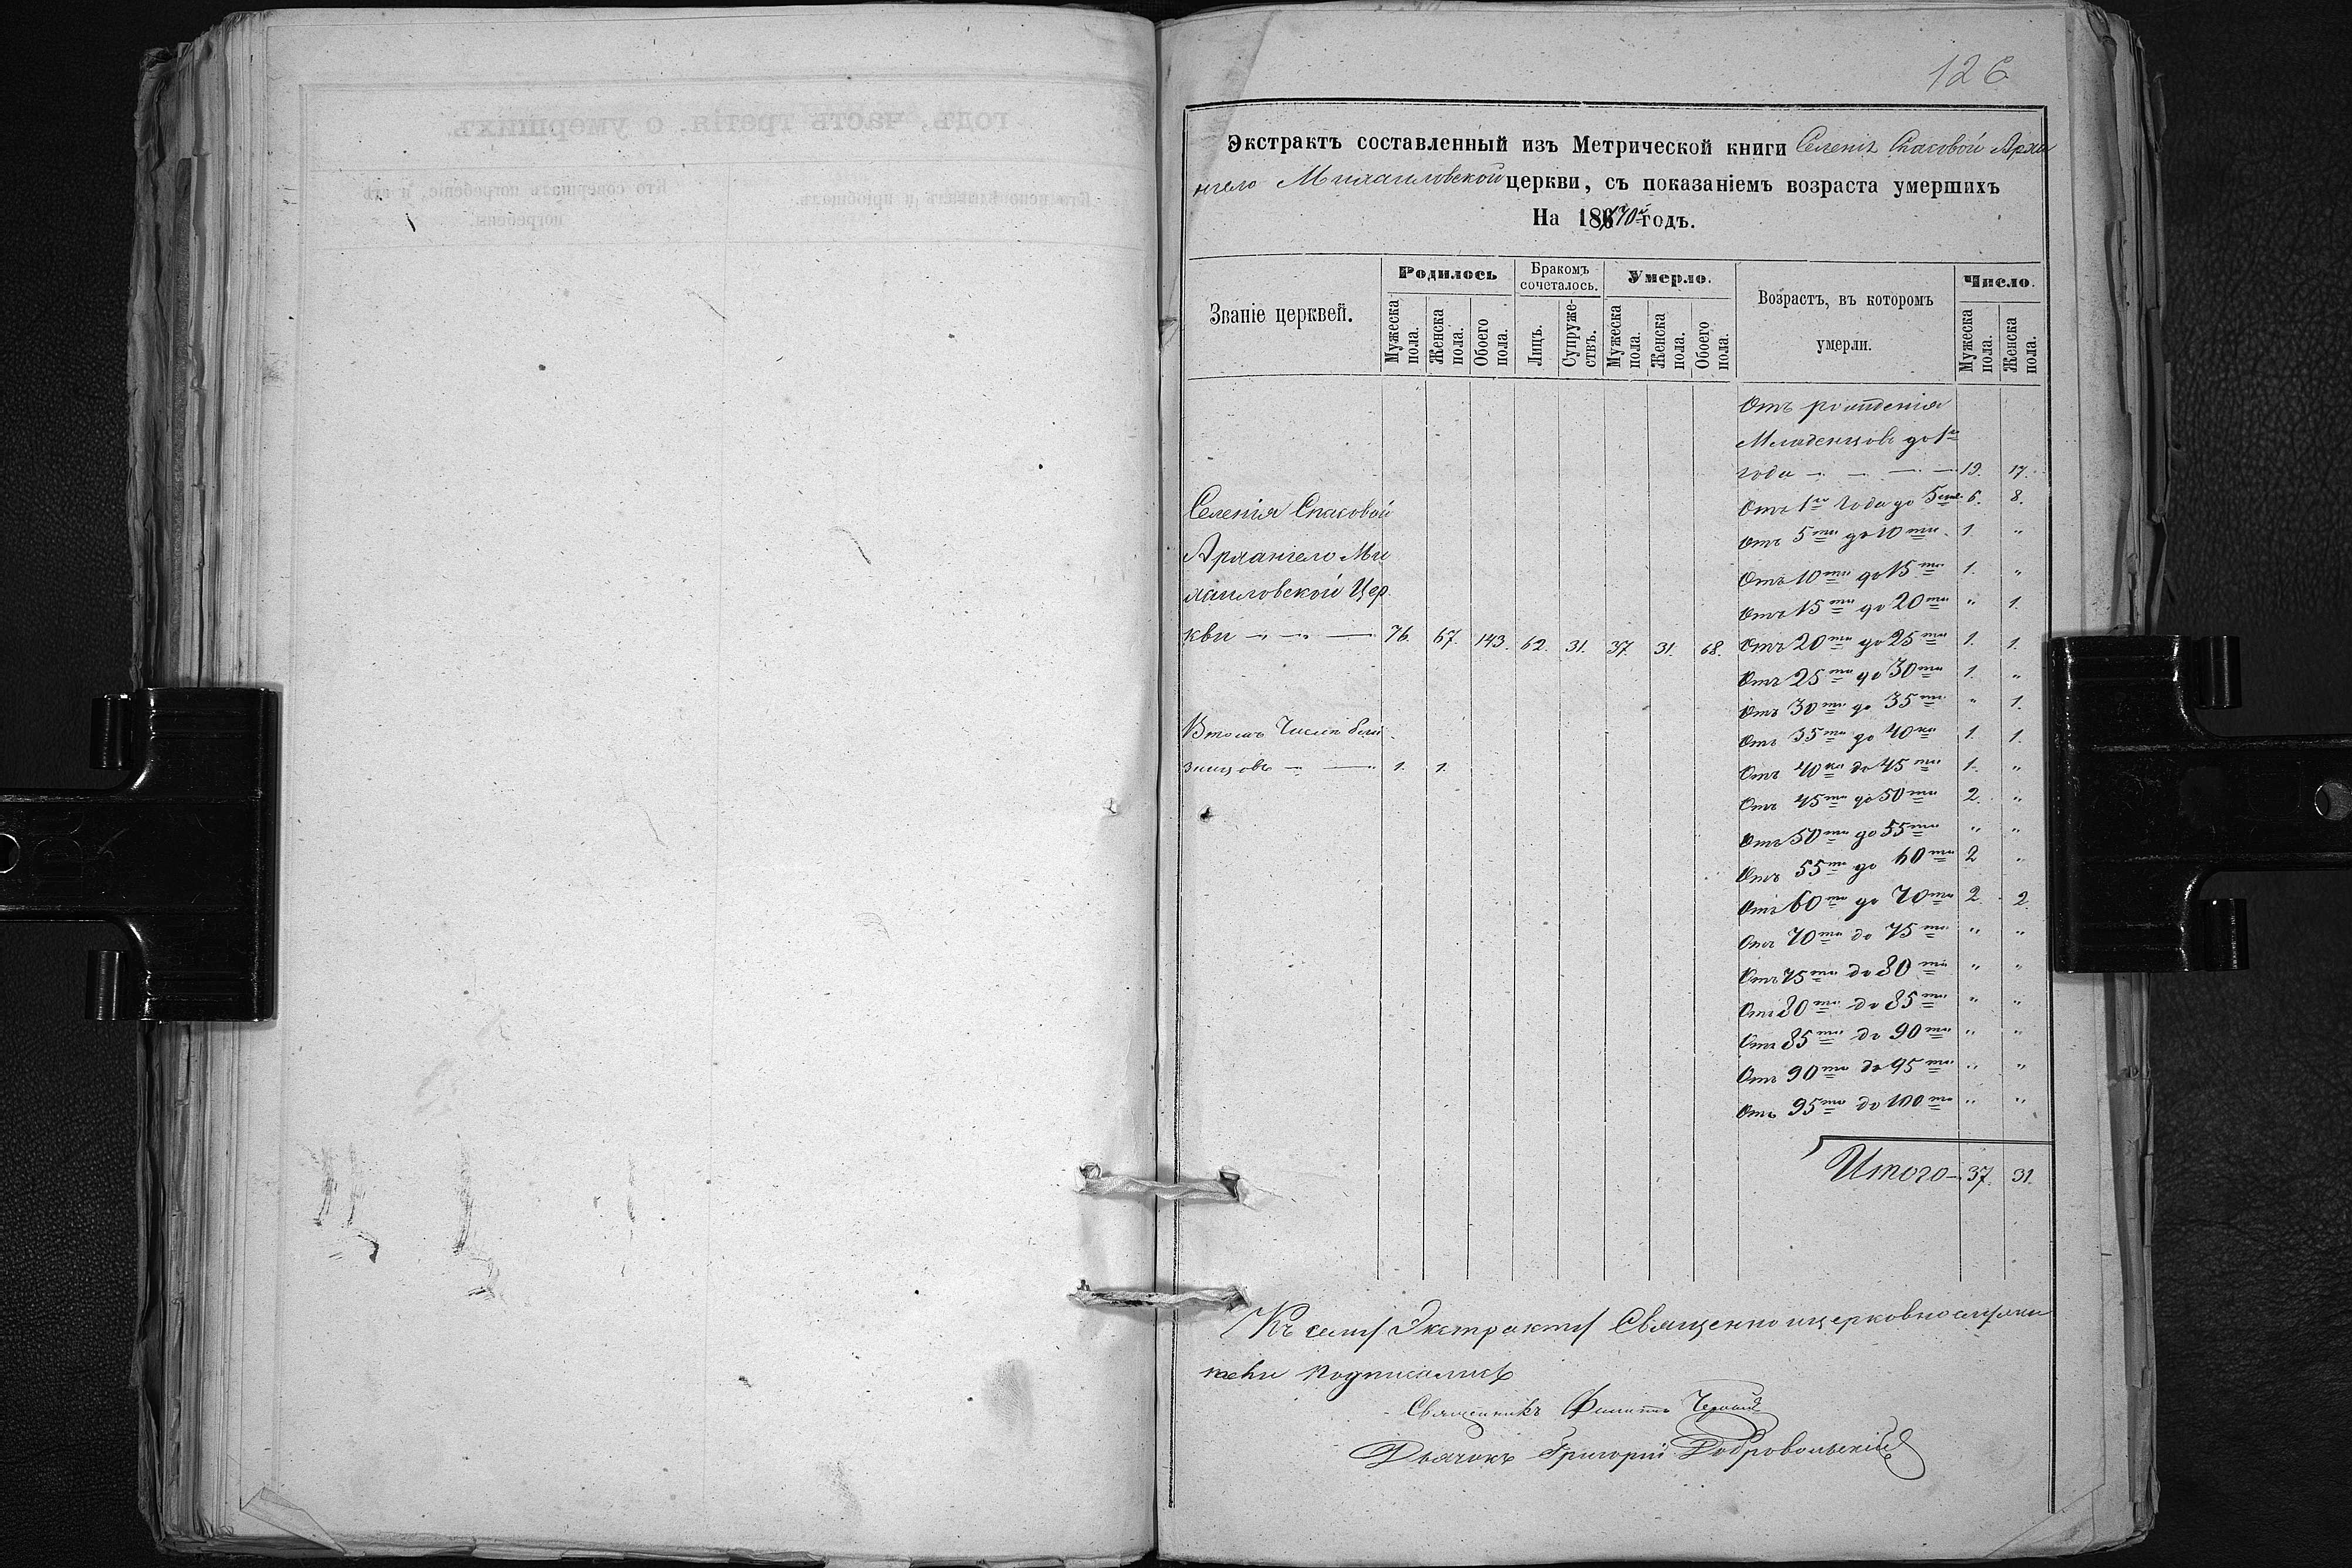 126
Экстрактъ составленный изъ Метрической книги Селенія Спасовой Арха
нгело Михаиловской церкви, съ показаніемъ возраста умершихъ
На 1870й годъ.
Званіе церквей.
Родилось
Бракомъ сочеталось.
Умерло.
Возрастъ, въ которомъ умерли.
Число.
Мужеска пола.
Женска пола.
Обоего пола.
Лицъ.
Супружествъ.
Мужеска пола.
Женска пола.
Обоего пола.
Мужеска пола.
Женска пола.
Отъ рожденія
Младенцовъ до 1го
года — — — — 19. 17.
Селенія Спасовой
Отъ 1го года до 5ти 6. 8.
Отъ 5ти до 10ти 1. "
Архангело Ми
Отъ 10ти до 15ти 1. "
хаиловской Цер
Отъ 15ти до 20ти " 1.
кви — — — 76. 67. 143. 62. 31. 37. 31. 68. Отъ 20ти до 25ти 1. 1.
Отъ 25ти до 30ти 1. "
Отъ 30ти до 35ти " 1.
Втомъ Числѣ бли
Отъ 35ти до 40ка 1. 1.
знецовъ — — 1. 1.
Отъ 40ка до 45ти 1. "
Отъ 45ти до 50ти 2. "
Отъ 50ти до 55ти " "
Отъ 55ти до 60ти 2 "
Отъ 60ти до 70ти 2. 2.
Отъ 70ти до 75ти " "
Отъ 75ти до 80ти " "
Отъ 80ти до 85ти " "
Отъ 85ти до 90ти " "
Отъ 90ти до 95ти " "
Отъ 95ти до 100та " "
Итого — 37. 31.
Къ сему Экстракту Священно ицерковнослужи
тели подписались
Священникъ Филиппъ
Дьячокъ Григорій Добровольскій